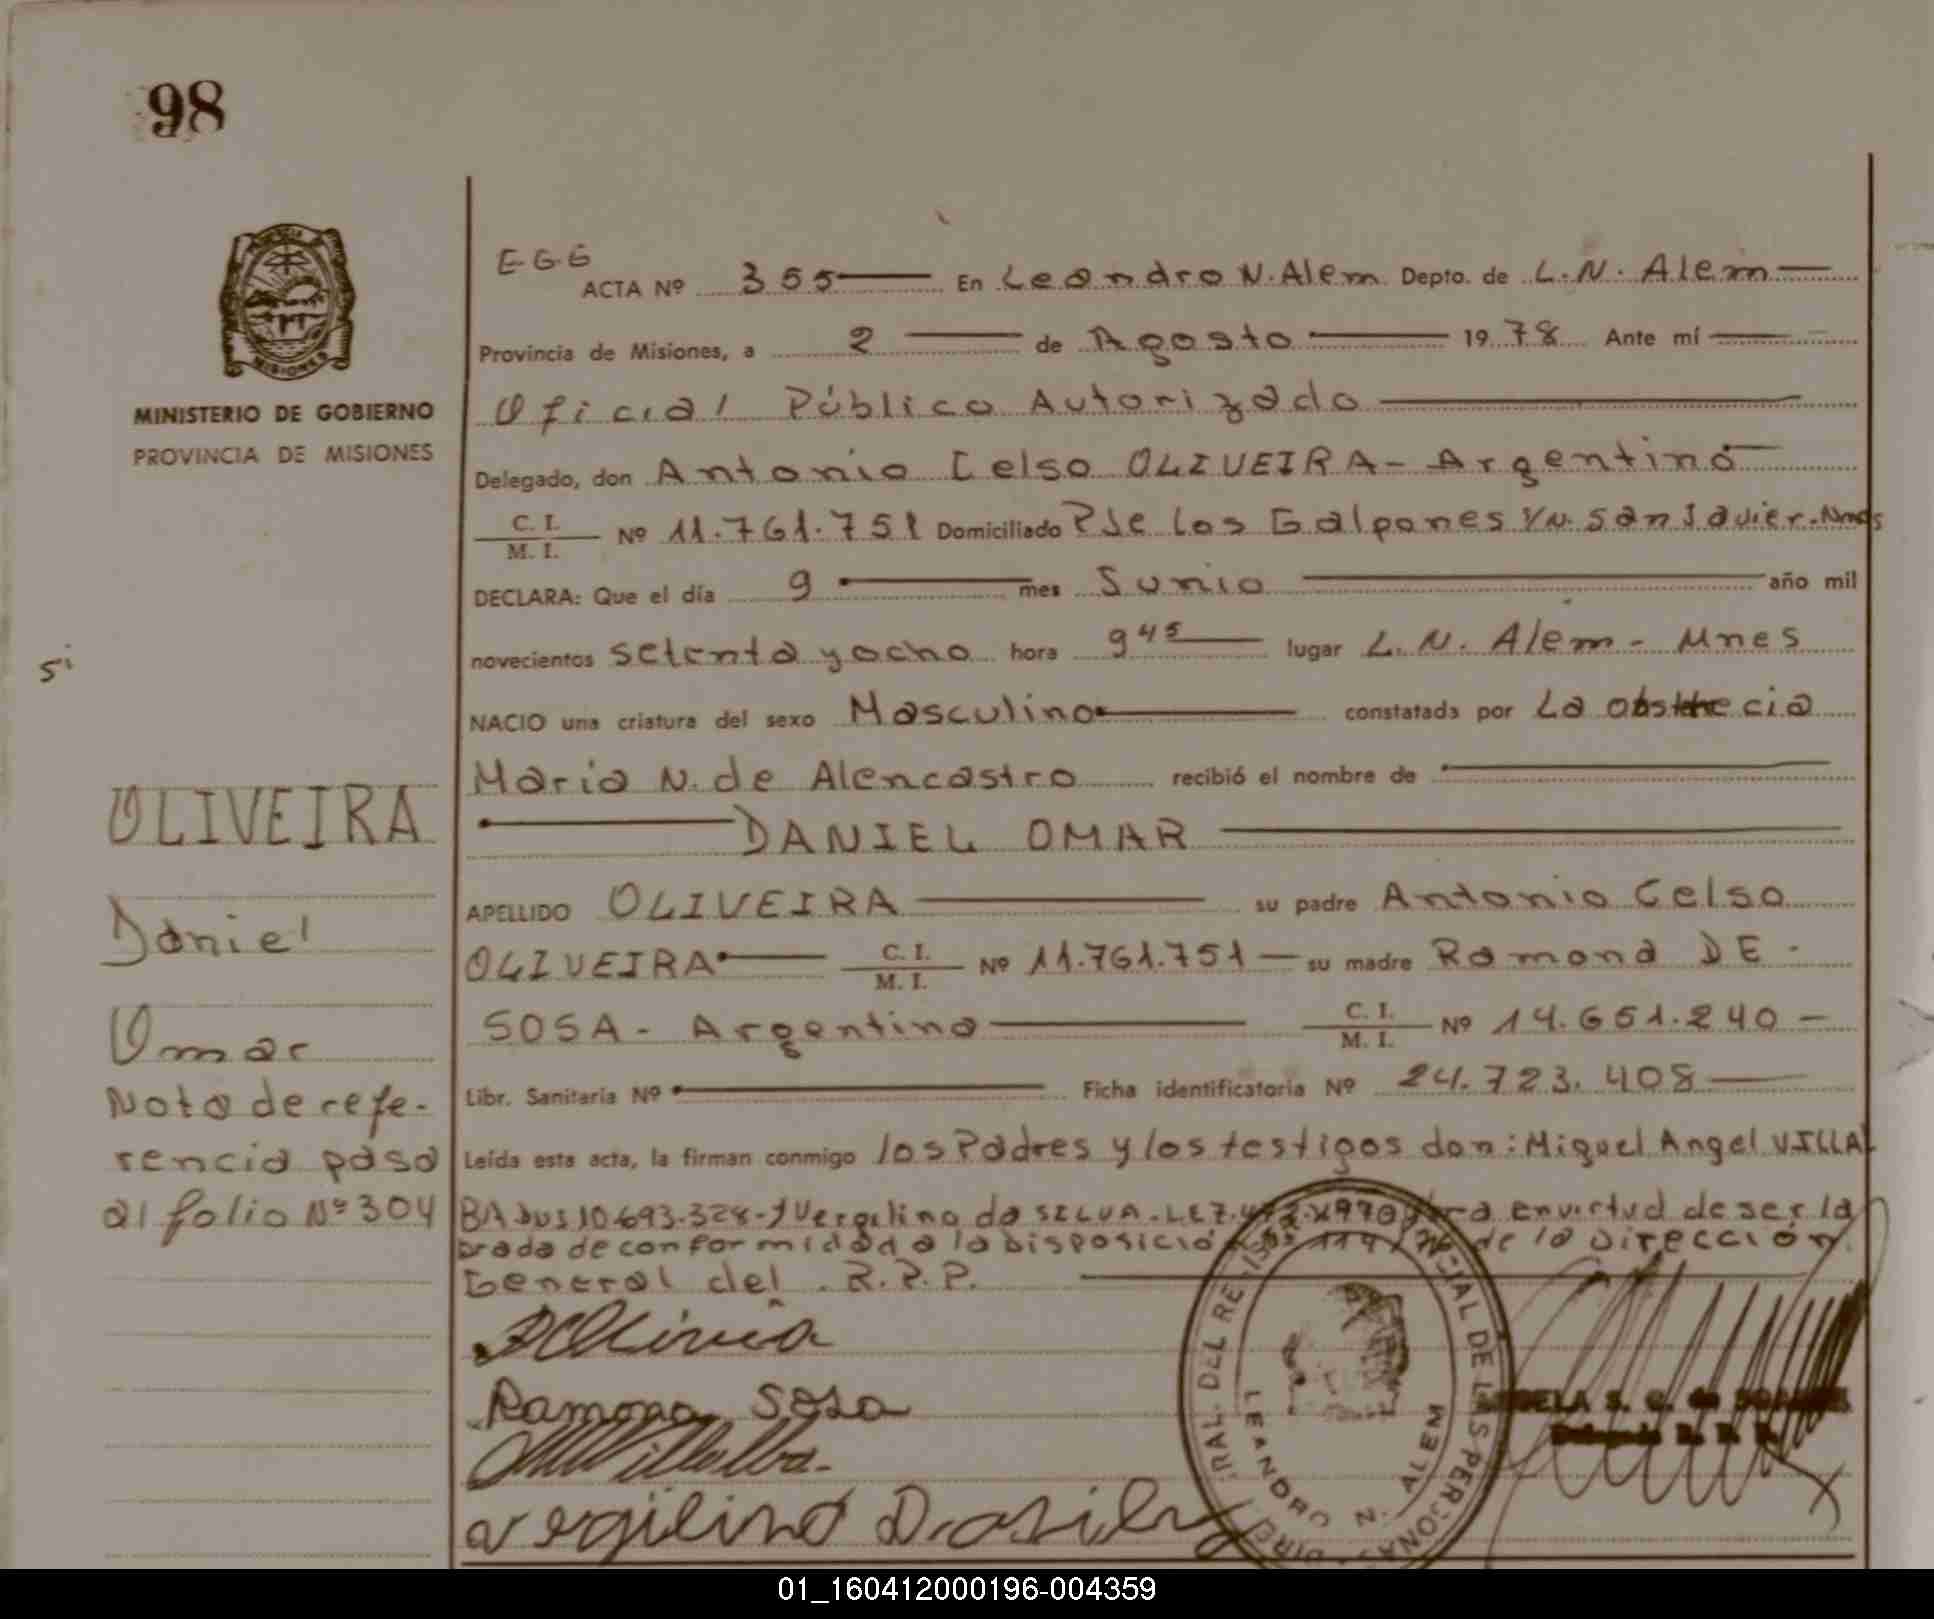 98
E-G-G
ACTA Nº 355 En Leandro N. Alem Depto. de L.N. Alem
Provincia de Misiones, a 2 de Agosto 1978 Ante mí
Oficial Público Autorizado
MINISTERIO DE GOBIERNO
PROVINCIA DE MISIONES
Delegado, don Antonio Celso OLIVEIRA - Argentino
C. I. / M. I. Nº 11.761.751 Domiciliado Pje Los Galpones San Javier - Mnes
DECLARA: Que el día 9 mes Junio año mil
novecientos setenta y ocho hora 9 45 lugar L. N. Alem - Mnes
si
NACIO una criatura del sexo Masculino constatada por La
Maria N. de Alencastro recibió el nombre de
DANIEL OMAR
OLIVEIRA
Daniel
Omar
Nota de refe-
rencia pasa
al folio Nº 304
APELLIDO OLIVEIRA su padre Antonio Celso
OLIVEIRA C. I. / M. I. Nº 11.761.751 - su madre Ramona DE -
SOSA - Argentina C. I. / M. I. Nº 14.651.240 -
Libr. Sanitaria Nº Ficha identificatoria Nº 24.723.408
Leída esta acta, la firman conmigo los Padres y los testigos don: Miguel Angel VILLAL
BA 10.693.328 - y Vergilino da SILVA - L.E 7. en virtud de ser la
brada de conformidad a la Disposición de la Dirección
General del R.P.P.
Ramona Sosa
MVillalba
Vergilino Dasilva
LEANDRO N. ALEM